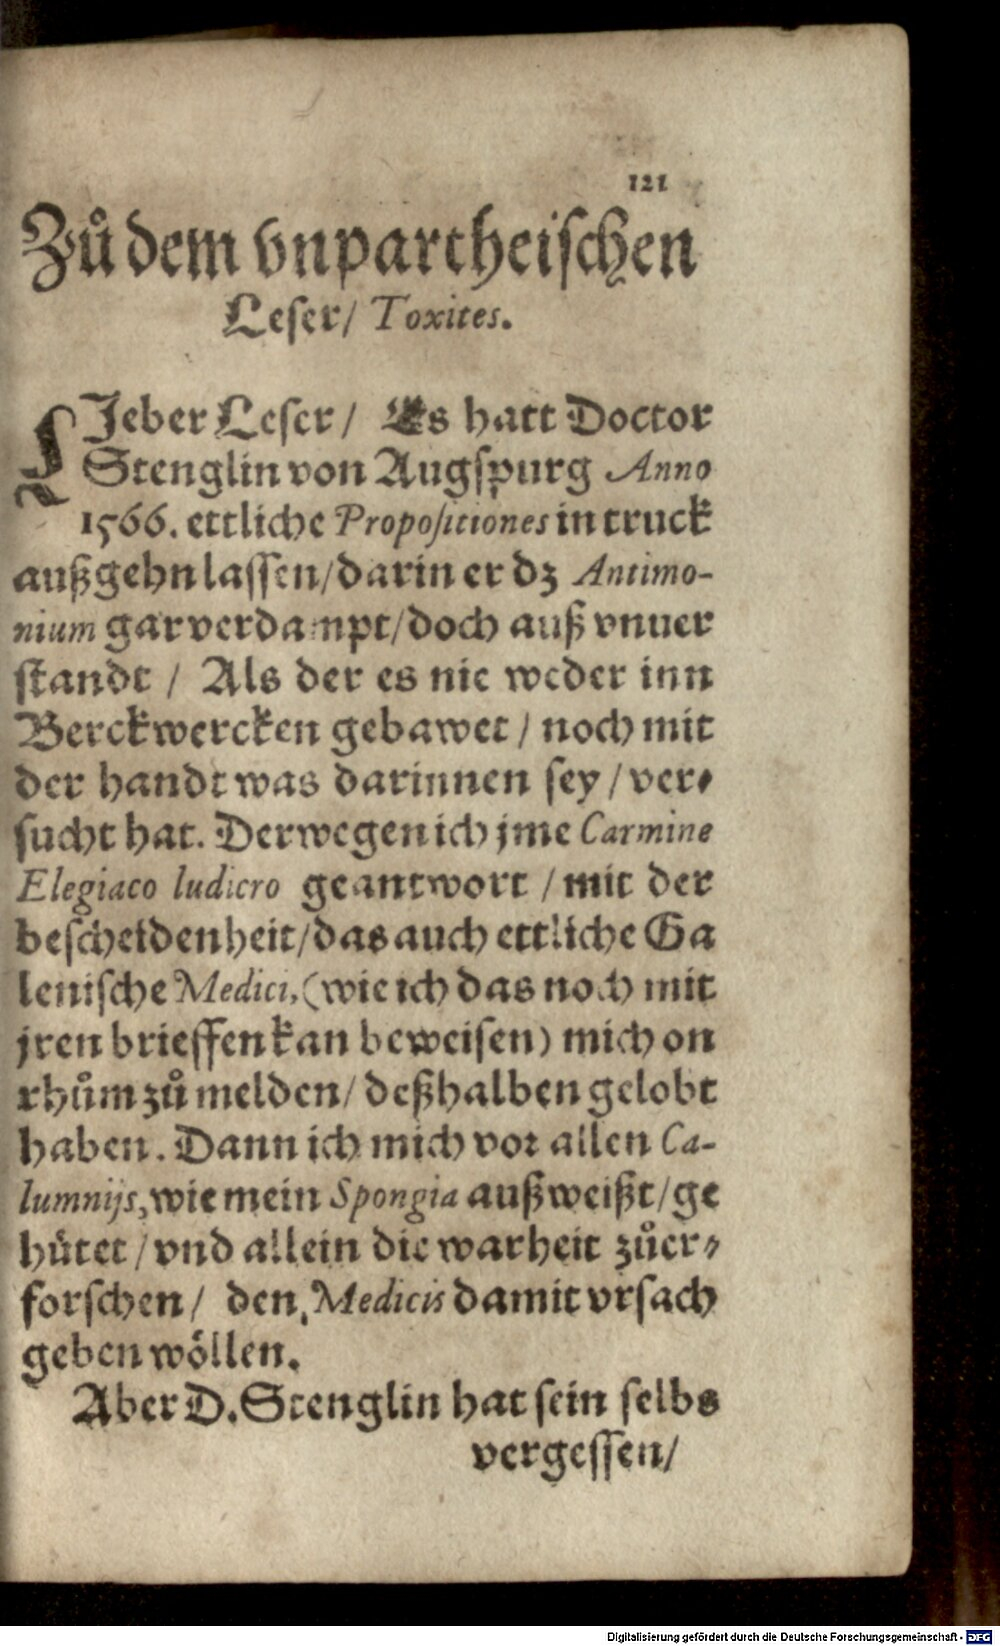 121
Zů dem vnpartheischen
Leser/ Toxites.
LIeber Leser/ Es hatt Doctor
Stenglin von Augspurg Anno
1566. ettliche Propositiones in truck
außgehn lassen/darin er dz Antimo-
nium gar verdampt/doch auß vnuer
standt / Als der es nie weder inn
Berckwercken gebawet / noch mit
der handt was darinnen sey / ver-
sucht hat. Derwegen ich jme Carmine
Elegiaco ludicro geantwort / mit der
bescheidenheit/das auch ettliche Ga
lenische Medici, (wie ich das noch mit
jren brieffen kan beweisen) mich on
rhům zů melden/ deßhalben gelobt
haben. Dann ich mich vor allen Ca-
lumnijs, wie mein Spongia außweißt/ge
hütet / vnd allein die warheit zů er-
forschen/ den Medicis damit vrsach
geben wöllen.
Aber D. Stenglin hat sein selbs
vergessen/
Digitalisierung gefördert durch die Deutsche Forschungsgemeinschaft - DFG